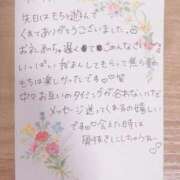 先日はもちと遊んで
くれてありがとうございました
お礼おそくなってごめんなさい
いっぱい 我まんしてもらって焦ら
もちは楽しかったです♡
中々お互いのタイミングが合わないけど
メッセージ送ってくれるの嬉しい
です♡会えた時は
しちゃうね